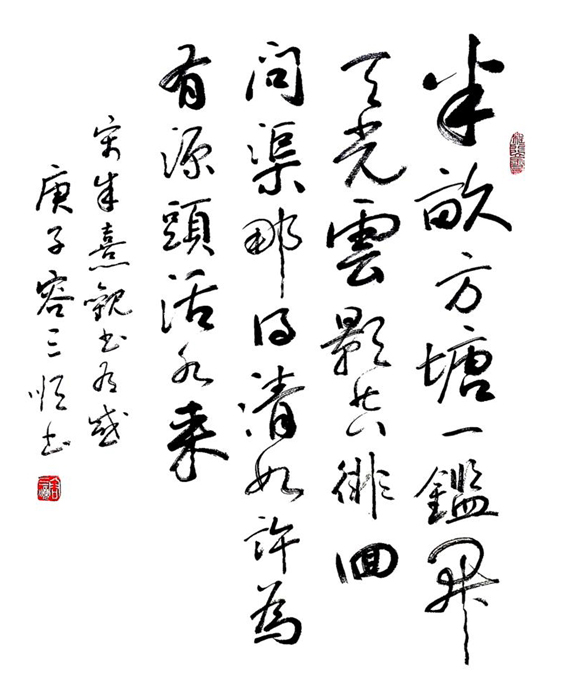 半畝方塘一鑑開
天光雲影共徘徊
問渠那得清如許為
有源頭活水来
宋朱熹觀書有感
庚子容三順書